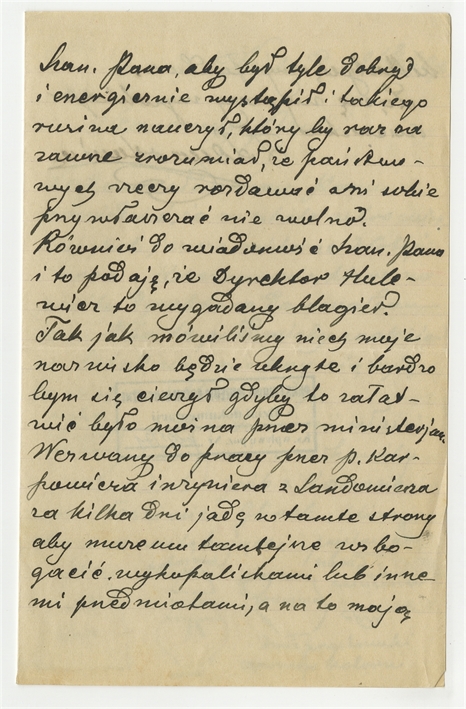 Szan. Pana, aby był tyle dobry
i energicznie wystąpił i takiego
rusina nauczył, który by raz na
zawsze zrozumiał, że państwo-
wych rzeczy rozdawać ani sobie
przywłaszczać nie wolno.
Również do wiadomość Szan. Pana
i to podaję, że Dyrektor Hule-
wicz to wygadany blagier.
Tak jak mówiliśmy niech moje
nazwisko będzie ukryte i bardzo
bym się cieszył gdyby to załat-
wić było można przez ministerjum.
Wezwany do pracy przez p. Kar-
powicza inżyniera z Sandomierza
za kilka dni jadę w tamte strony
aby muzeum tamtejsze wzbo-
gacić wykopaliskami lub inne
mi przedmiotami, a na to mają